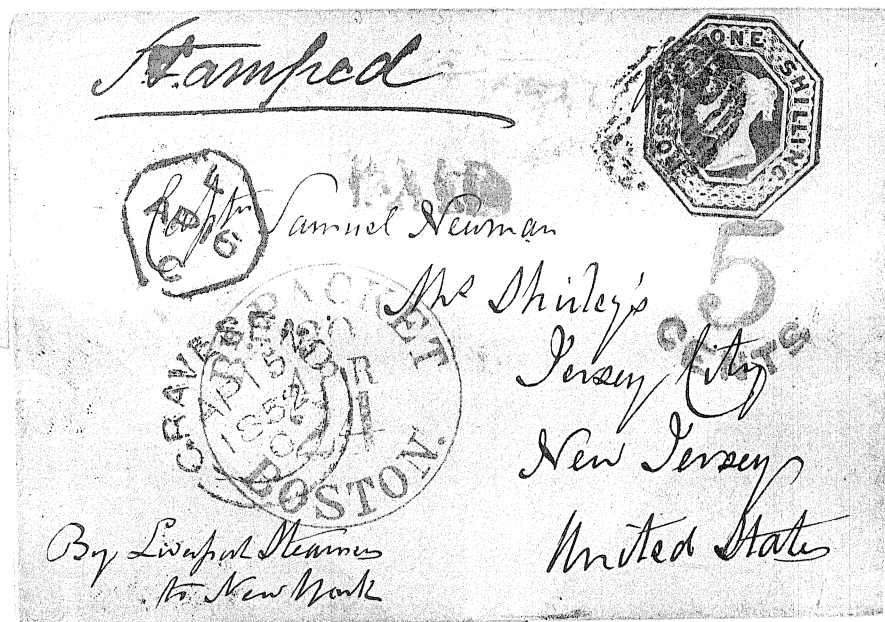 Stamped
POSTAGE ONE SHILLING
PAID
4
AP 16
C
Captn Samuel Newman
5
CENTS
Mrs Shirley's
Jersey City
New Jersey
United States
BR. PACKET
BOSTON.
GRAVESEND
AP 15
1852
By Liverpool Steamer
to New York